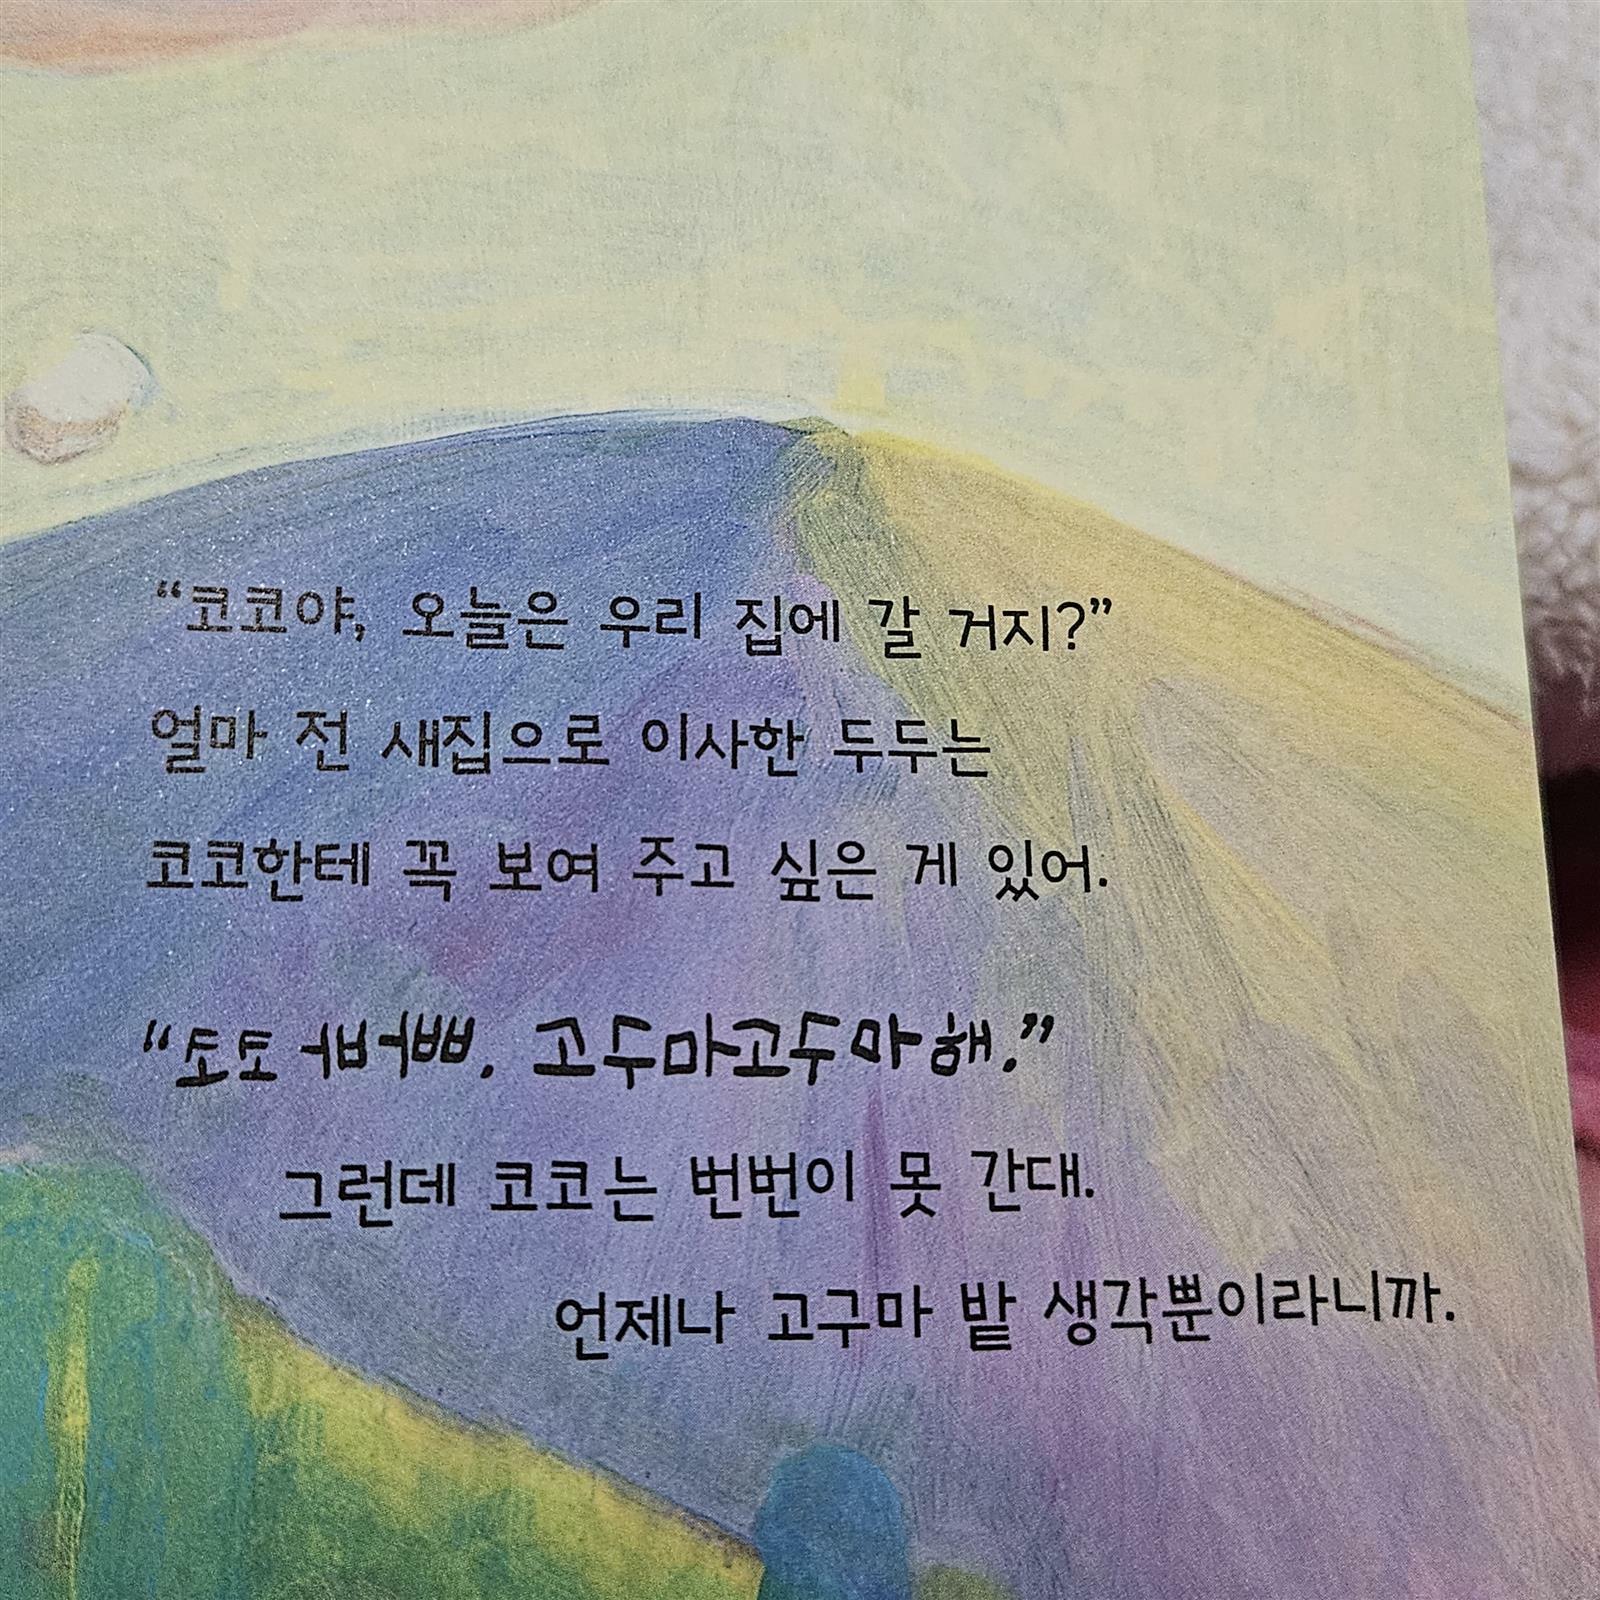 “코코야, 오늘은 우리 집에 갈 거지?”
얼마 전 새집으로 이사한 두두는
코코한테 꼭 보여 주고 싶은 게 있어.
“코코 바빠. 고구마고구마해.”
그런데 코코는 번번이 못 간대.
언제나 고구마 밭 생각뿐이라니까.